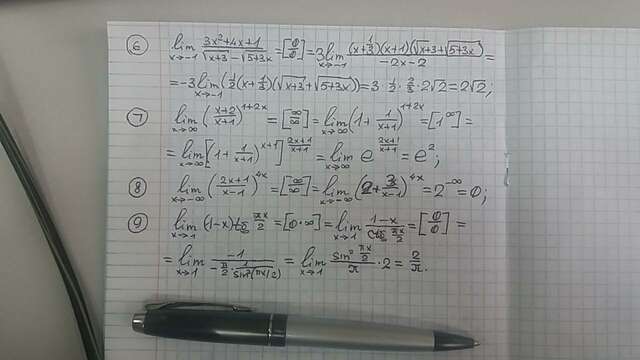 6 lim x→-1 (3x²+4x+1)/(√(x+3) - √(5+3x)) = [0/0] = 3 lim x→-1 ((x+1/3)(x+1)(√(x+3)+√(5+3x)))/(-2x-2) =
= -3 lim x→-1 (1/2(x+1/3)(√(x+3)+√(5+3x))) = 3·1/2·2/3·2√2 = 2√2;
7 lim x→∞ ((x+2)/(x+1))^(1+2x) = [∞/∞] = lim x→∞ (1+1/(x+1))^(1+2x) = [1^∞] =
= lim x→∞ [(1+1/(x+1))^(x+1)]^((2x+1)/(x+1)) = lim x→∞ e^((2x+1)/(x+1)) = e²;
8 lim x→-∞ ((2x+1)/(x-1))^(4x) = [∞/∞] = lim x→-∞ (2+3/(x-1))^(4x) = 2^(-∞) = 0;
9 lim x→1 (1-x) tg πx/2 = [0·∞] = lim x→1 (1-x)/(ctg πx/2) = [0/0] =
= lim x→1 (-1)/(-π/2 · 1/(sin²(πx/2))) = lim x→1 (sin² πx/2)/π · 2 = 2/π.